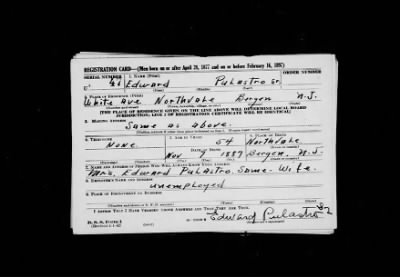 REGISTRATION CARD—(Men born on or after April 28, 1877 and on or before February 16, 1897)
SERIAL NUMBER 1. NAME (Print) ORDER NUMBER
U Edward Pulastro Sr.
2. PLACE OF RESIDENCE (Print)
White Ave Northvale Bergen N.J.
[THE PLACE OF RESIDENCE GIVEN ON THE LINE ABOVE WILL DETERMINE LOCAL BOARD
JURISDICTION; LINE 2 OF REGISTRATION CERTIFICATE WILL BE IDENTICAL]
3. MAILING ADDRESS
Same as above.
4. TELEPHONE 5. AGE IN YEARS 6. PLACE OF BIRTH
None 54 Northvale
DATE OF BIRTH
Nov 9 1889 Bergen, N.J.
7. NAME AND ADDRESS OF PERSON WHO WILL ALWAYS KNOW YOUR ADDRESS
Mrs. Edward Pulastro. Same. Wife.
8. EMPLOYER'S NAME AND ADDRESS
unemployed
9. PLACE OF EMPLOYMENT OR BUSINESS
I AFFIRM THAT I HAVE VERIFIED ABOVE ANSWERS AND THAT THEY ARE TRUE.
D. S. S. Form 1
Edward Pulastro Sr